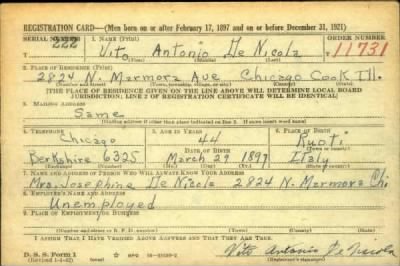 REGISTRATION CARD—(Men born on or after February 17, 1897 and on or before December 31, 1921)
SERIAL NUMBER 1. NAME (Print) ORDER NUMBER
222 Vito Antonio De Nicola 11731
(First) (Middle) (Last)
2. PLACE OF RESIDENCE (Print)
2824 N. Marmora Ave Chicago Cook Ill.
(Number and street) (Town, township, village, or city) (County) (State)
[THE PLACE OF RESIDENCE GIVEN ON THE LINE ABOVE WILL DETERMINE LOCAL BOARD
JURISDICTION; LINE 2 OF REGISTRATION CERTIFICATE WILL BE IDENTICAL]
3. MAILING ADDRESS
Same
(Mailing address if other than place indicated on line 2. If same insert word same)
4. TELEPHONE 5. AGE IN YEARS 6. PLACE OF BIRTH
Chicago 44 Ruoti
DATE OF BIRTH
Berkshire 6325 March 29 1897 Italy
(Exchange) (Number) (Mo.) (Day) (Yr.) (State or country)
7. NAME AND ADDRESS OF PERSON WHO WILL ALWAYS KNOW YOUR ADDRESS
Mrs. Josephine De Nicola 2824 N. Marmora Chi
8. EMPLOYER'S NAME AND ADDRESS
Unemployed
9. PLACE OF EMPLOYMENT OR BUSINESS
(Number and street or R. F. D. number) (Town) (County) (State)
I AFFIRM THAT I HAVE VERIFIED ABOVE ANSWERS AND THAT THEY ARE TRUE.
D. S. S. Form 1 Vito Antonio De Nicola
(Revised 1-1-42) (over)